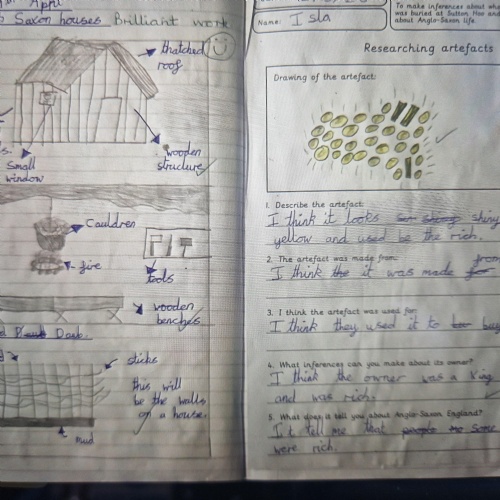 April
Saxon houses Brilliant work
thatched
roof
small
window
wooden
structure
Cauldren
fire
tools
wooden
benches
Daub.
sticks
this will
be the walls
of a house.
mud
To make inferences about
was buried at Sutton Hoo
about Anglo-Saxon life.
Name: Isla
Researching artefacts
Drawing of the artefact:
1. Describe the artefact:
I think it looks shiny
yellow and used be the rich.
2. The artefact was made from:
from
I think it was made
3. I think the artefact was used for:
I think they used it to buy
4. What inferences can you make about its owner?
I think the owner was a King
and was rich.
5. What does it tell you about Anglo-Saxon England?
It tell me that some
were rich.